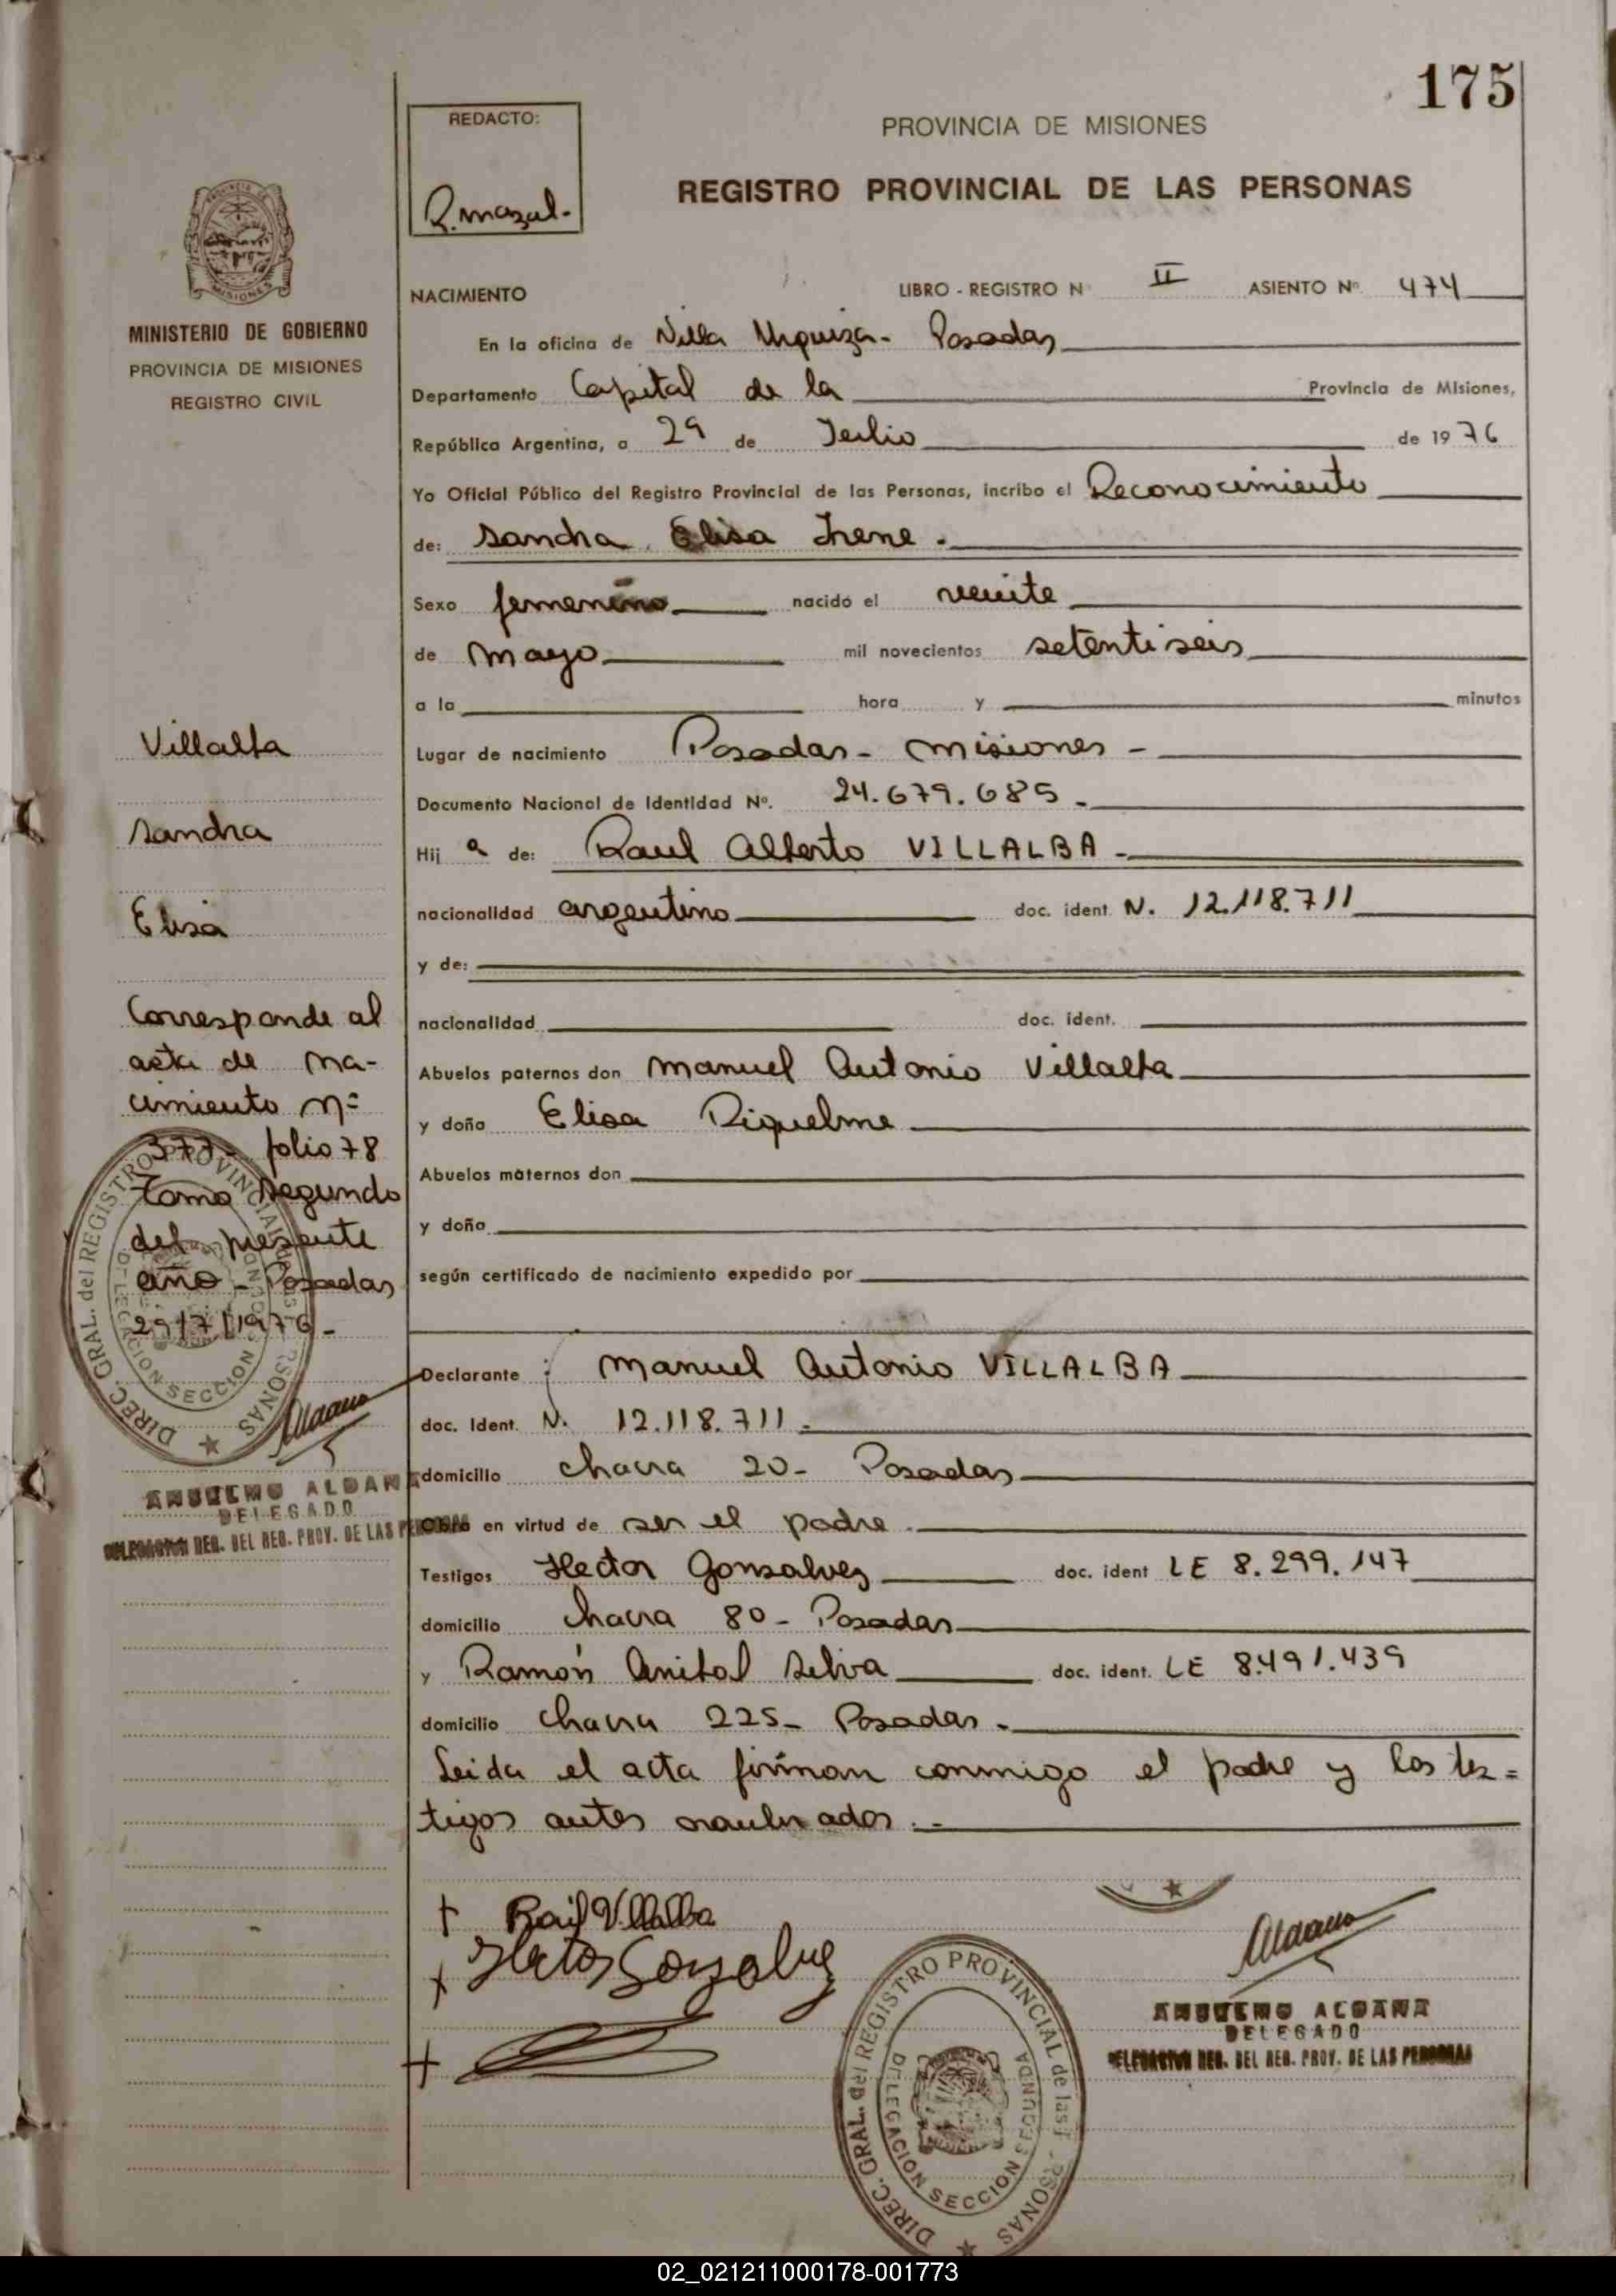 175
REDACTO:
R. mazal.-
PROVINCIA DE MISIONES
REGISTRO PROVINCIAL DE LAS PERSONAS
MISIONES
MINISTERIO DE GOBIERNO
PROVINCIA DE MISIONES
REGISTRO CIVIL
NACIMIENTO LIBRO - REGISTRO Nº II ASIENTO Nº 474
En la oficina de Villa Urquiza - Posadas
Departamento Capital de la Provincia de Misiones,
República Argentina, a 29 de Julio de 1976
Yo Oficial Público del Registro Provincial de las Personas, incribo el Reconocimiento
de: Sandra Elisa Irene.
Sexo femenino nacido el veinte
de mayo mil novecientos setentiseis
a la hora y minutos
Lugar de nacimiento Posadas - misiones -
Documento Nacional de Identidad Nº. 24.679.685 -
Hij a de: Raul Alberto VILLALBA -
nacionalidad argentino doc. ident. N. 12.118.711
y de:
nacionalidad doc. ident.
Abuelos paternos don Manuel Antonio Villalba
y doña Elisa Riquelme
Abuelos maternos don
y doña
según certificado de nacimiento expedido por
Declarante : Manuel Antonio VILLALBA
doc. Ident. N. 12.118.711 -
domicilio chacra 20 - Posadas
Obra en virtud de ser el padre.
Testigos Hector Gonsalvez doc. ident LE 8.299.147
domicilio chacra 80 - Posadas
y Ramón Anibal Silva doc. ident. LE 8.491.439
domicilio chacra 225 - Posadas -
Leida el acta firman conmigo el padre y los tes=
tigos antes nombrados.-
Villalba
Sandra
Elisa
Corresponde al
acta de na-
cimiento nº
377 - folio 78
tomo segundo
del presente
año - Posadas
29/7/1976 -
DIREC. GRAL. del REGISTRO PROVINCIAL de las PERSONAS
DELEGACION SECCION SEGUNDA
Aldana
ANSELMO ALDANA
DELEGADO
DELEGACION REG. DEL REG. PROV. DE LAS PERSONAS
+ Raúl Villalba
x Hector Gonzalvez
+
DIREC. GRAL. del REGISTRO PROVINCIAL de las PERSONAS
DELEGACION SECCION SEGUNDA
Aldana
ANSELMO ALDANA
DELEGADO
DELEGACION REG. DEL REG. PROV. DE LAS PERSONAS
02_021211000178-001773